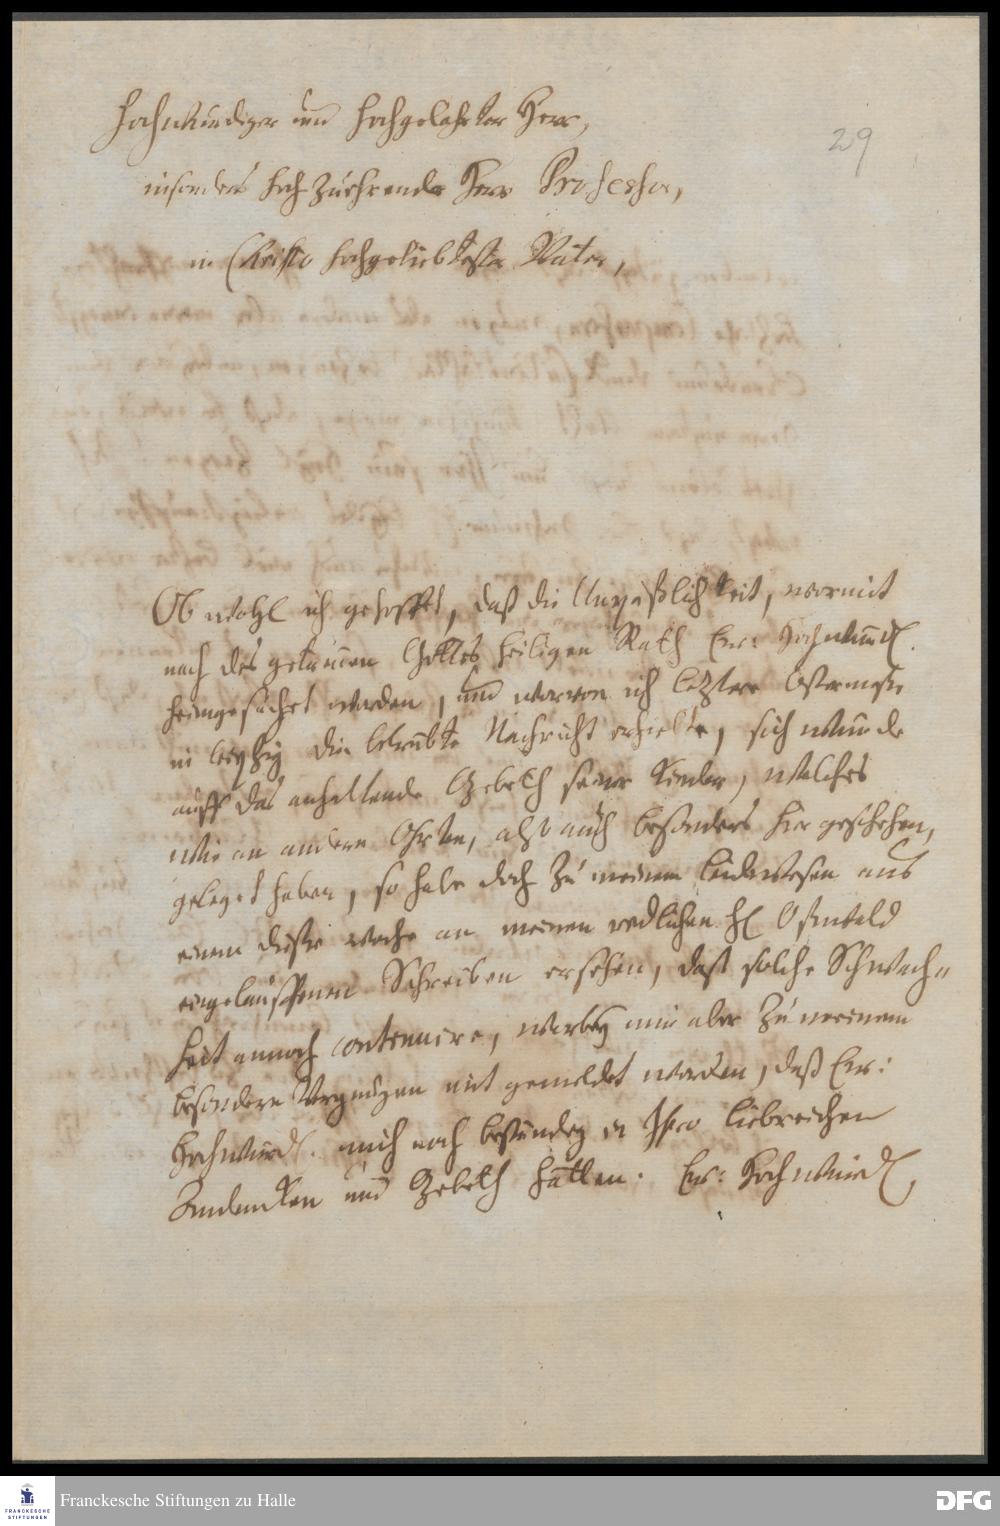 Hochwürdiger und Hochgelahrter Herr,
29
insonders Hoch zu ehrender Herr Professor,
in Christo Hochgeliebtester Vater,
Ob wohl ich gehoffet, daß die Unpäßlichkeit, wormit
nach des getreuen Gottes heiligen Rath Ew: Hochwürd.
heimgesuchet worden, und worvon ich letztere Ostermeße
in Leipzig die betrübte Nachricht erhielte, sich würde
auff das anhaltende Gebeth seiner Kinder, welches
wie an andern Orten, also auch besonders hier geschehen,
geleget haben, so habe doch zu meinem Leidwesen aus
einem diese Woche an meinen redlichen H.
eingelauffenen Schreiben ersehen, daß solche Schwach-
heit annoch continuire, worbey mir aber zu meinem
besondern Vergnügen mit gemeldet worden, daß Ew:
Hochwürd. mich noch beständig in liebreichen
Andencken und Gebeth hätten. Ew: Hochwürd.
FRANCKESCHE STIFTUNGEN
Franckesche Stiftungen zu Halle
DFG